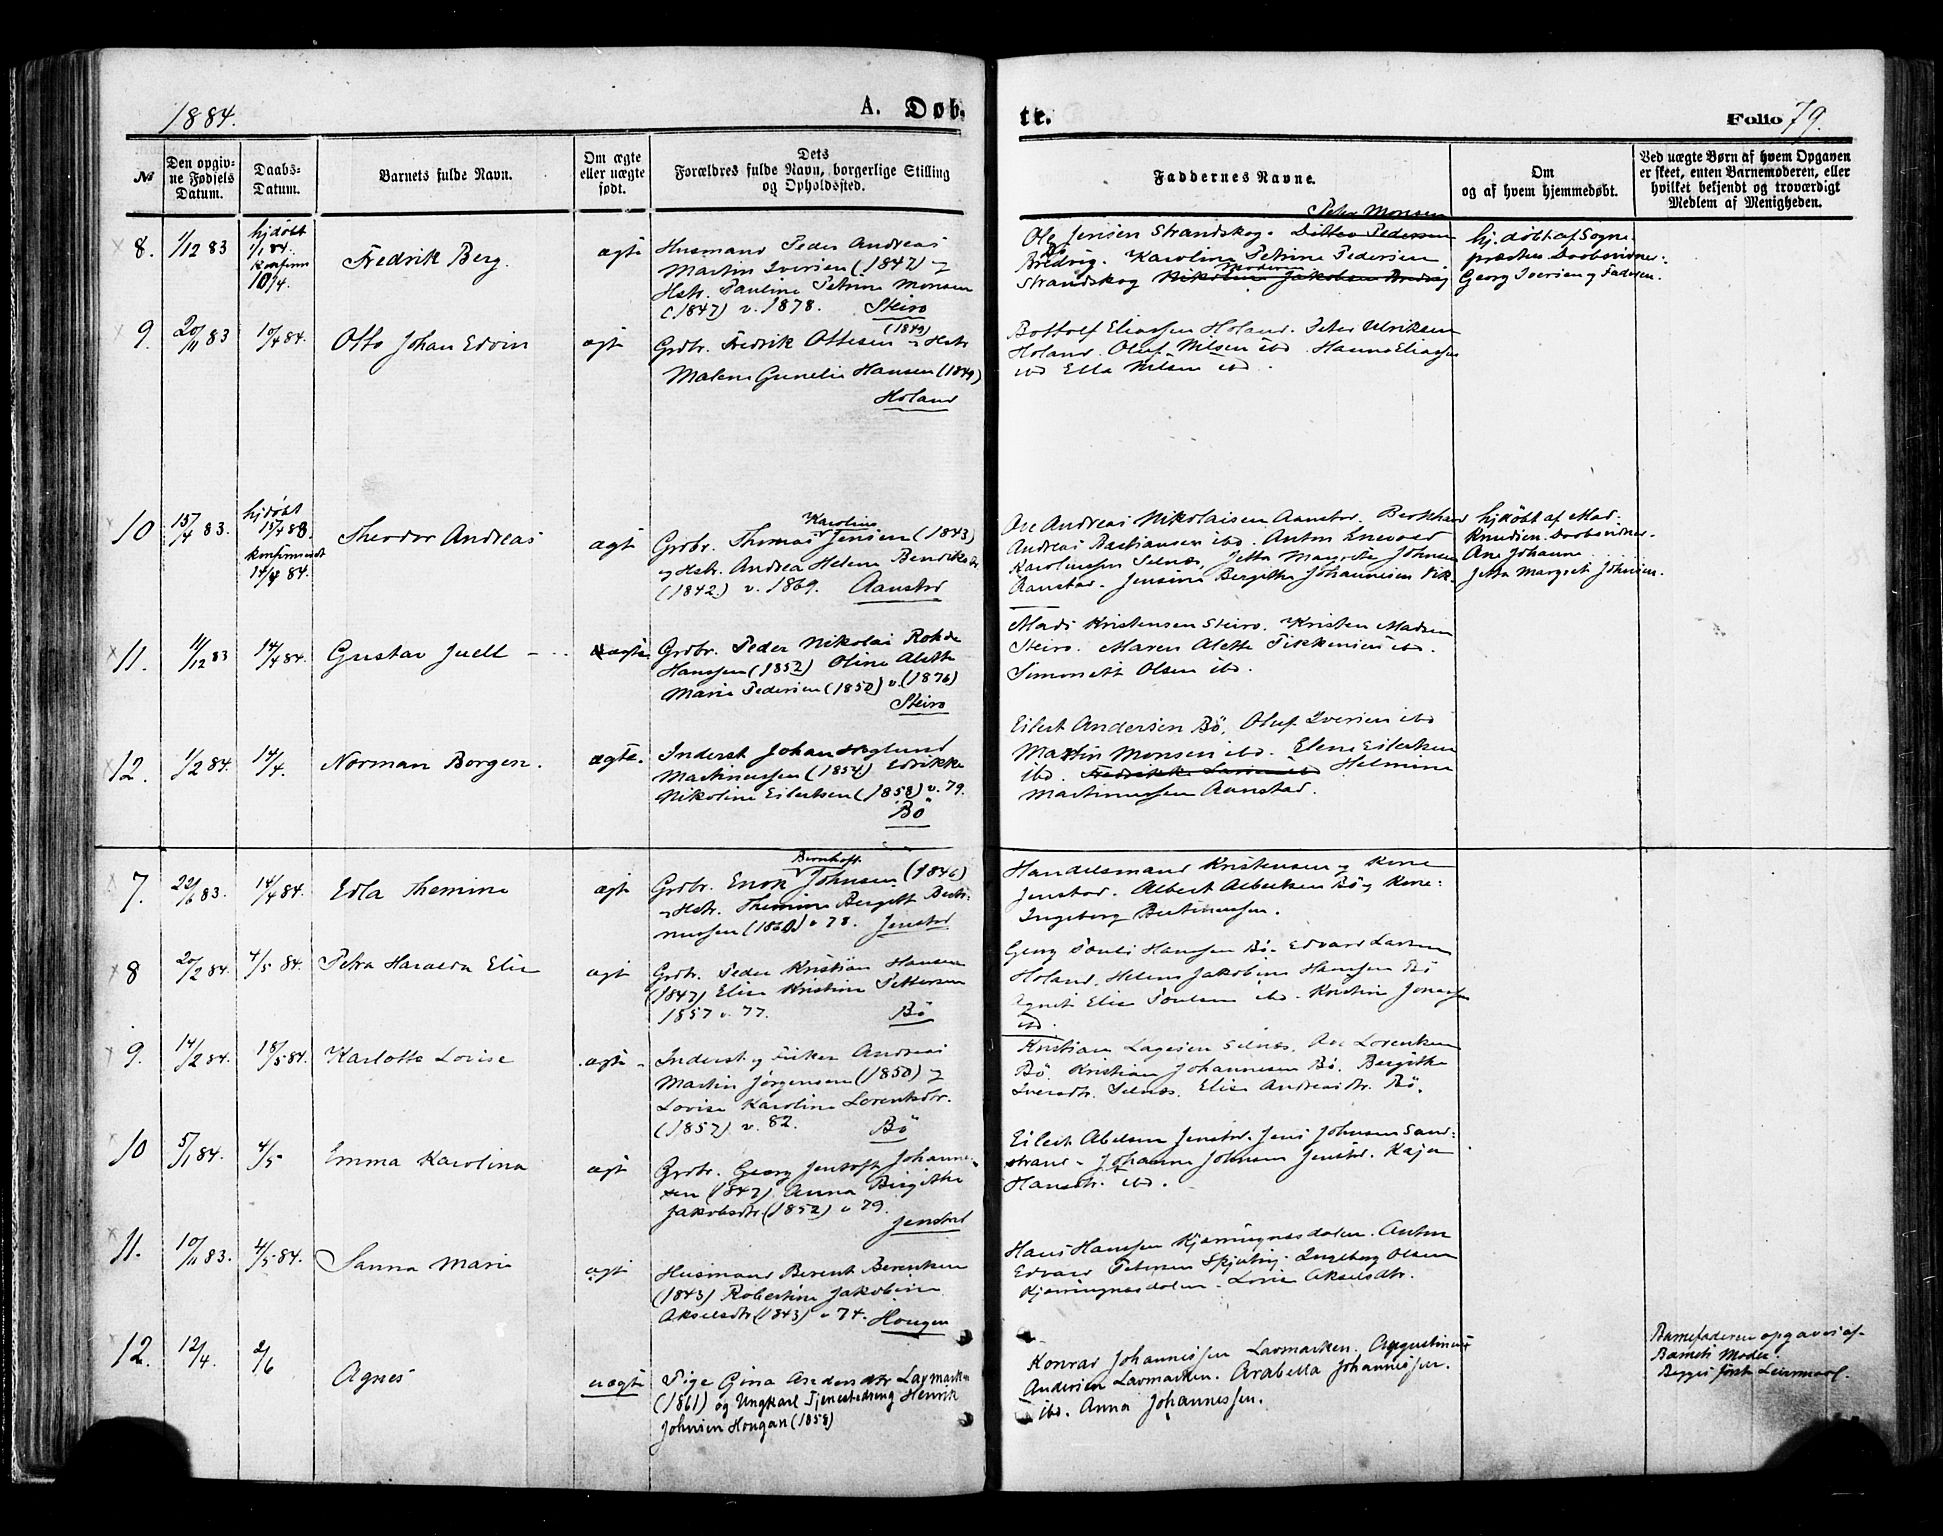 1884.
A. Døb-
te.
Folio 79.
№
Den opgiv-
ne Fødsels
Datum.
Daabs-
Datum.
Barnets fulde Navn.
Om ægte
eller uægte
født.
Dets
Forældres fulde Navn, borgerlige Stilling
og Opholdssted.
Faddernes Navne.
Om
og af hvem hjemmedøbt.
Ved uægte Børn af hvem Opgaven
er skeet, enten Barnemoderen, eller
hvilket bekjendt og troværdigt
Medlem af Menigheden.
8.
1/12 83
hjdøbt
1/1 84.
konfirm
10/4.
Fredrik Berg.
ægte
Husmand Peder Andreas
Martin Iversen (1847) og
Hstr. Pauline Petrine Monsen
(1847) v. 1878. Steiro
Peter Monsen
Ole Jensen Strandskog. Ditlev Pedersen
Bredvig. Karoline Petrine Pedersen
Strandskog Moderen Nikoline Jakobsen Bredvig
hj. døbt af Sogne-
præsten Daabsvidner:
Georg Iversen og Faderen.
9.
20/11 83
10/4 84.
Otto Johan Edvin
ægte
(1849)
Grdbr. Fredrik Ottesen og Hstr
Malene Gunelie Hansen (1849)
Holand
Bottolf Eliassen Holand. Peter Ulriksen
Holand. Oluf Nilsen ibd. Hanna Eliassen
ibd Ella Nilsen ibd.
10
15/4 83.
hjdøbt
15/4 83.
konfirmeret
14/4 84.
Theodor Andreas
ægte
Karolius
Grdbr. Thomas Jensen (1843)
og Hstr. Andrea Helene Benriksdtr
(1842) v. 1869. Aanstad
Ole Andreas Nikolaisen Aanstad. Bernhard
Andreas Bastiansen ibd. Anton Enevold
Karoliussen Selnæs, Jetta Margrete Johnsen
Aanstad. Jensine Bergitha Johannesen Vik
hjdøbt af Mad.
Knudsen. Daabsvidner.
Ane Johanne
Jetta Margret Johnsen.
11.
11/12 83
14/4 84.
Gustav Juell
ægte
Grdbr. Peder Nikolai Rohde
Hanssen (1852) Oline Alette
Marie Pedersen (1850) v. (1876)
Steiro
Mads Kristensen Steiro. Kristen Madsen
Steiro. Maren Alette Fiskensen ibd.
Simonette Olsen ibd.
12.
1/2 84.
14/4.
Norman Borgen.
ægte.
Inderst Johan Høglund
Martinussen (1854) Edrikke
Nikoline Eilertsen (1858) v. 79.
Bö
Eilert Andersen Bö, Oluf Iversen ibd
Martin Monsen ibd. Elen Eilertsen
ibd. Fredrikke Larsen ibd Helmine
Martinussen Aanstad.
7.
22/6 83.
14/4 84.
Edla Themine
ægte
Bernhoft
Grdbr. Enok Johnsen (1846)
og Hstr. Themine Bergitt Berti-
nussen (1860) v 78. Jenstad
Handelsmand Kristensen og Kone
Jenstad. Albert Albertsen Bö og Kone:
Ingeborg Bertinussen.
8
20/2 84.
4/5 84.
Petra Haralda Elise
ægte
Grdbr. Peder Kristian Hansen
(1847) Elise Kristine Pettersen
1857 v. 77. Bö
Georg Pauli Hanssen Bö. Edvard Larsen
Holand. Helene Jakobine Hanssen Bö
Agnet Elise Poulsen ibd. Kristine Jonassen
ibd.
9.
14/2 84.
18/5 84.
Karlotte Lovise
ægte
Inderst og Fisker Andreas
Martin Jørgensen (1850) og
Lovise Karoline Lorentsdtr.
(1857) v. 82. Bö
Kristian Lagesen Selnæs. Ole Lorentsen
Bö. Kristian Johannesen Bö. Bergitha
Iversdtr. Selnæs. Elise Andreasdtr. Bö.
10
5/1 84.
4/5
Emma Karolina
ægte
Grdbr. Georg Jentoft Johanne-
sen (1847) Anna Birgitha
Jakobsdtr. (1852) v 79.
Jenstad
Eilert Abelsen Jenstad. Jens Johnsen Sand-
strand. Johanna Johnsen Jenstad. Kaja
Hansdtr. ibd.
11.
10/11 83.
4/5 84.
Sanna Marie
ægte
Husmand Berent Berentsen
(1843) Robertine Jakobine
Akselsdtr (1843) v 74. Hougen
Hans Hanssen Kjerringnesdalen. Anton
Edvard Petersen Ingeborg Olsen
Kjerringnesdalen. Lovise Akselsdtr.
12.
12/4.
2/6
Agnes
uægte
Pige Gina Andersdtr Lavmarken
(1861) og Ungkarl Tjenestedreng Henrik
Johnsen Hougan (1858)
Konrad Johannessen Lavmarken. Augustinus
Andersen Lavmarken. Arabella Johannessen.
ibd. Anna Johannessen.
Barnefaderen opgaves af
Barnets Moder.
Begges første Leiermaal.